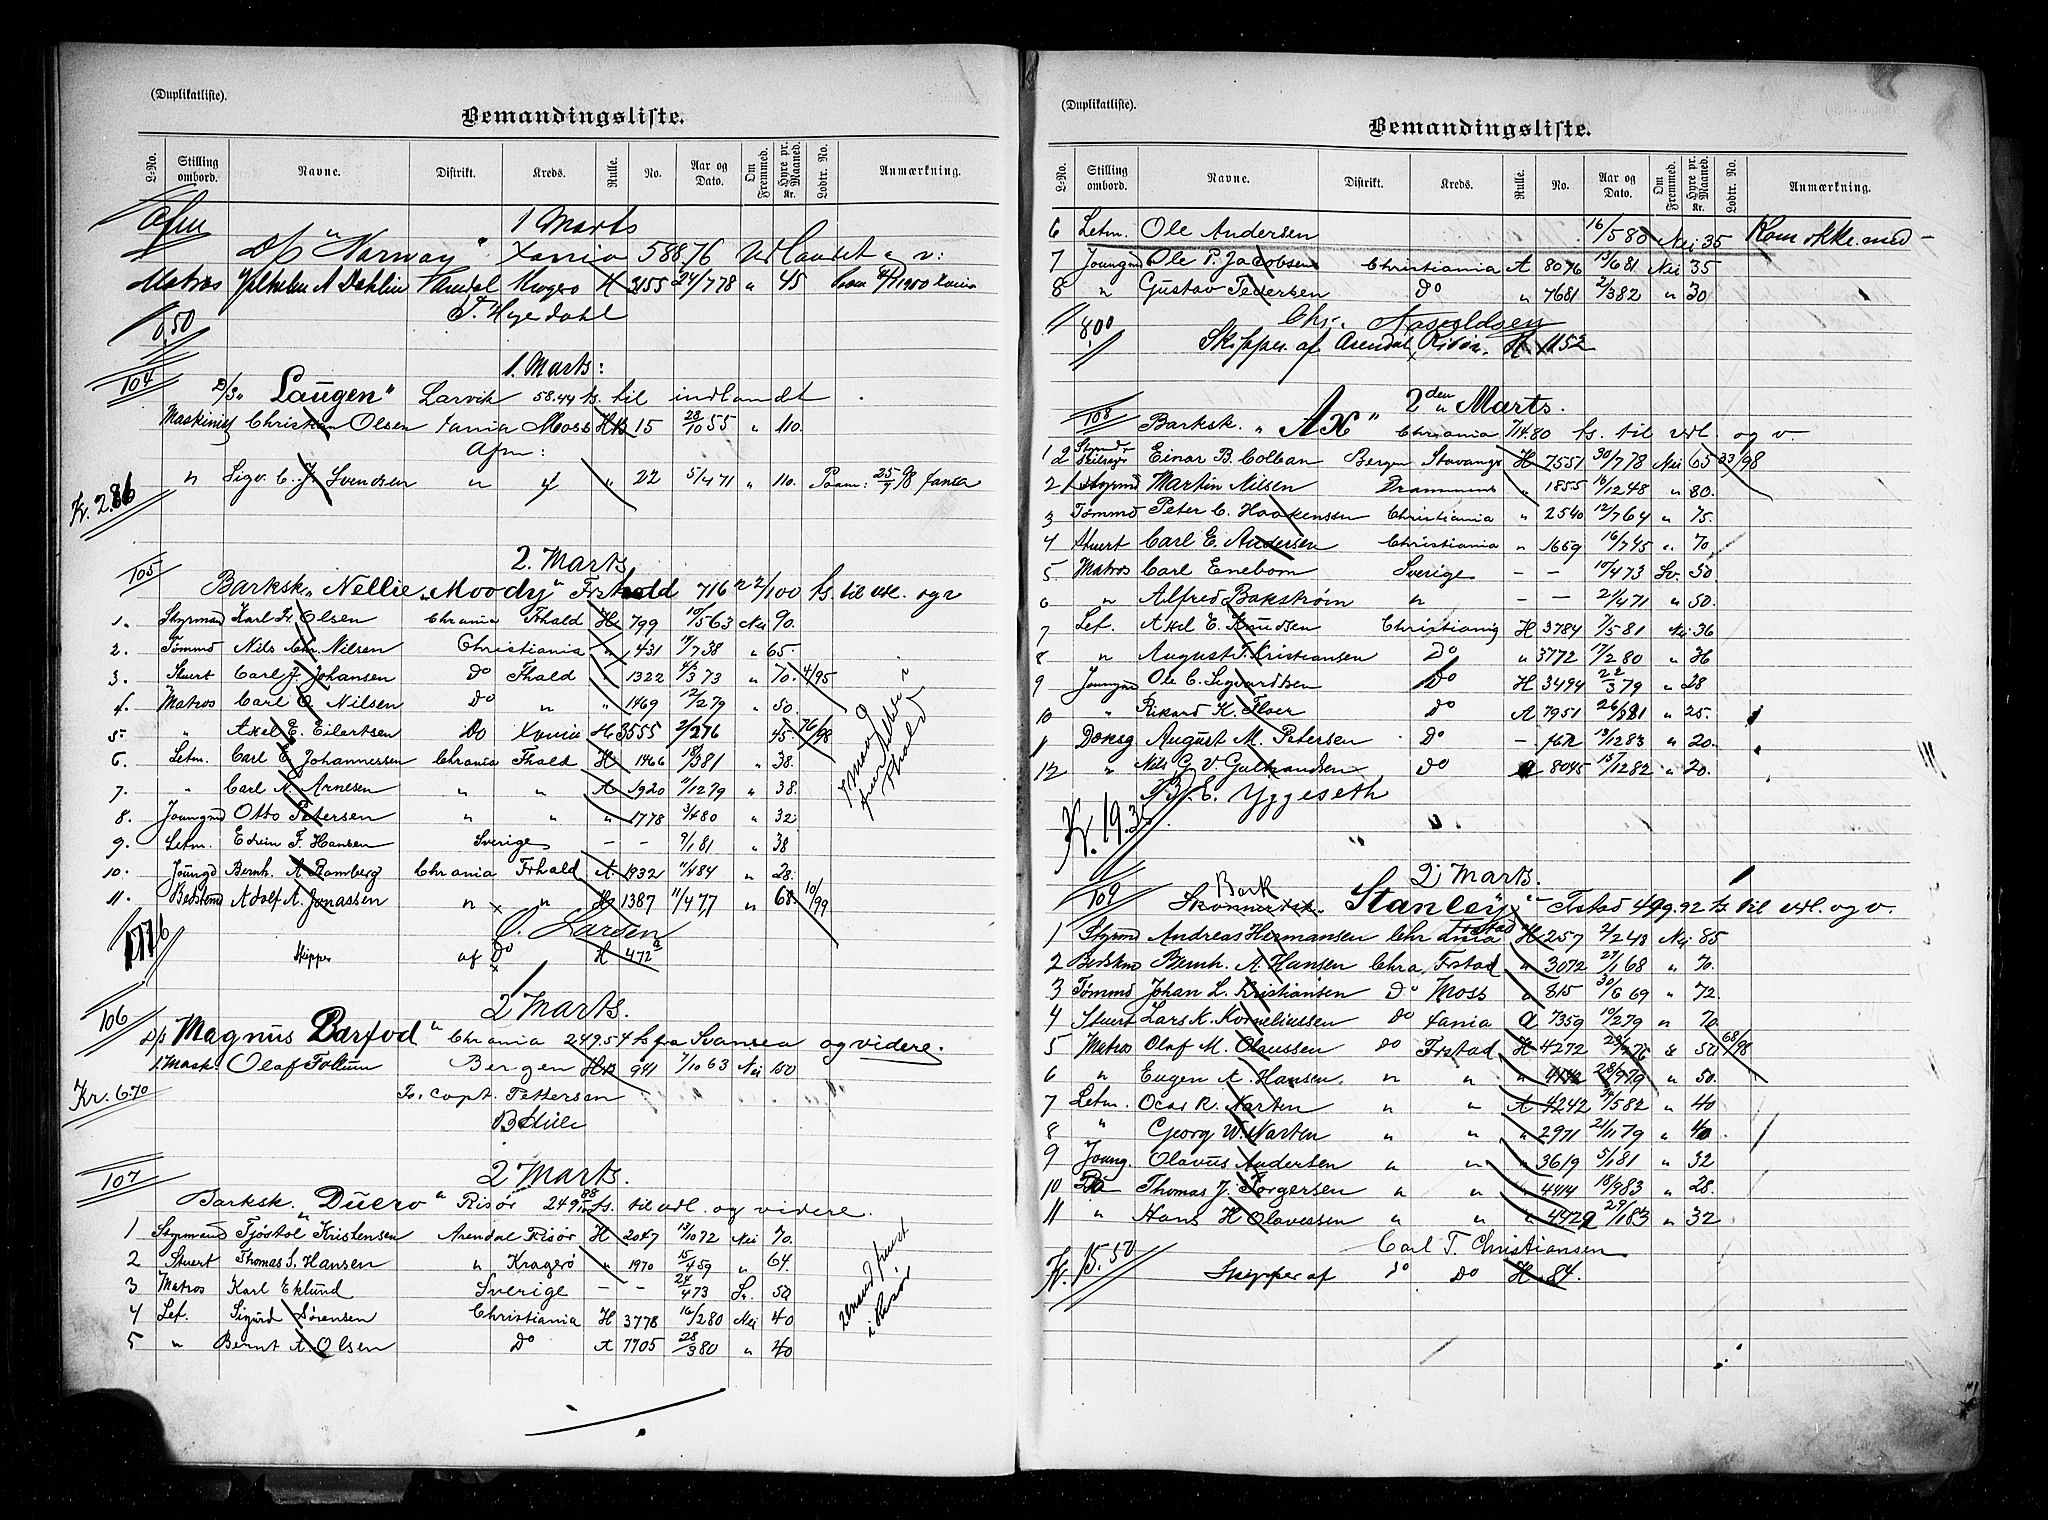 (Duplikatliste).
Bemandingsliste.
L-No. Stilling ombord. Navne. Distrikt. Kreds. Rulle. No. Aar og Dato. Om Fremmed. Hyre pr. Maaned. Kr. Lodtr. No. Anmærkning.
Afm 1 Marts
D/S "Norway" Xania 588 76 Udlandet o. v:
Matros A Dahlin H 3155 24/778 " 45
0,50 T. Hyerdahl
104 1. Marts:
D/S "Laugen" Larvik 58.44 ts. til indlandt
Maskinist Christian Olsen Xania Moss HB 15 28/10 55 " 110.
Afm:
" Sigv. C. J. Svendsen " " " 22 5/471 " 110.
Kr. 2.86
105 2. Marts
Barksk. "Nellie Moody" Frhald 716 22/100 ts. til udl. og v
1. Styrmand Karl Fr. Olsen Chrania Frhald H 799 10/563 Nei 90.
2. Tømmd Nils Chr. Nilsen Christiania " 431 11/738 " 65.
3. Stuert Carl J. Johansen Do Fhald " 1322 4/373 " 70. 4/95
4. Matros Carl O. Nilsen Do " " 1469 12/279 " 50.
5 " Axel E. Eilertsen Do Xania H 3555 2/276 45 76/98
6. Letm. Carl E. Johannessen Chrania Fhald H 1466 18/381 " 38.
7. " Carl A. Arnesen " " A 1920 11/1279 " 38.
8. Joungmd Otto Petersen " " " 1778 3/480 " 32
9. Letm. Edvin F. Hansen Sverige - - 9/181 " 38
10. Joungd Bernh. A. Ramberg Chrania Frhald A 1932 11/484 " 28.
11. Bedstemd Adolf A. Jonassen " " H 1387 11/477 " 68. 10/99
17.16 O. Larsen
Skipper af Do H 472
106 2 Marts.
D/S "Magnus Barfod" Chrania 249.54 ts fra Svansea og videre.
1. Mask. Olaf Foltum Bergen HB 941 7/1063 Nei 150
Kr. 6.70 Fr. Capt. Pettersen
107 2 Marts.
Barksk. "Duero" Risør 249 88/100 ts. til udl. og videre.
1 Styrmand Tjøstol Kristensen Arendal Risør H 2047 13/1072 Nei 70.
2 Stuert Thomas S. Hansen " Kragerø " 1970 15/459 " 64.
3 Matros Karl Eklund Sverige - - 24/473 Sv. 50
4 Lef. Sigurd Sørensen Christiania H 3778 16/280 Nei 40
5 " Bernt A. Olsen Do A 7705 28/980 " 40
2 mand i Risør
(Duplikatliste).
Bemandingsliste.
L-No. Stilling ombord. Navne. Distrikt. Kreds. Rulle. No. Aar og Dato. Om Fremmed. Hyre pr. Maaned. Kr. Lodtr. No. Anmærkning.
6 Letm. Ole Andersen 16/580 Nei 35 Kom ikke med -
7 Joungmd Ole P. Jacobsen Christiania A 8076 13/681 Nei 35
8 " Gustav Pedersen Do " 7681 2/382 " 30
8,00 Chr.
Skipper af Arendal, Risør. H 1152
108 2den Marts.
Barksk. "Ax" Chrania 714.80 ts. til udl. og v.
1 2 Einar B. Colban Bergen Stavanger H 7551 30/778 Nei 65 33/98
2 1 Styrmd Martin Nilsen Drammens " 1855 16/1248 " 80.
3 Tømmd Peter C. Haakenssen Christiania " 2540 12/764 " 75.
4 Stuert Carl E. Andersen Christiania " 1669 16/745 " 70
5 Matros Carl Enebom Sverige - - 10/473 Sv. 50
6 " Alfred Bakstrøm " - - 21/471 " 50.
7 Lef. Axel E. Knudsen Christiania H 3784 7/581 Nei 36
8 " August T. Kristiansen Do " 3772 17/280 " 36
9 Joungmd Ole C. Sigvardtsen Do H 3494 22/379 " 28
10 " Rikard H. Floer Do A 7951 26/381 " 25.
11 Dæksg August M. Petersen Do - 13/1283 " 20.
12 " Nils G. V. Gulbrandsen Do A 8045 15/1282 " 20.
E. Yggeseth
Kr. 19.35
109 2 Marts.
Bark
Skonnertsk. "Stanley" Fstad 499.92 ts til udl. og v.
1 Styrmd Andreas Hermansen Chrania Frstad H 257 2/243 Nei 85
2 Bedstmd Bernh. A. Hansen Chra, Frstad " 3072 27/168 " 70.
3 Tømmd Johan L. Kristiansen Do Moss " 815 30/669 " 72
4 Stuert Lars K. Korneliussen Do Xania A 7359 19/279 " 70.
5 Matros Olaf M. Olaussen Do Frstad H 4272 50 68/98
6 " Eugen A. Hansen. " " " 28/979 " 50.
7 Letm. Oscar R. Narten " " A 4242 582 " 40
8 " Georg W. Narten " " " 2971 21/179 " 40
9 Joung. Olavus Andersen " " " 3619 5/181 " 32
10 Do Thomas J. Torgersen " " " 4414 18/983 " 28.
11 " Hans H. Olavessen " " " 4429 29/183 " 32
Carl T. Christiansen
Kr. 15.50 Skipper af Do Do H. 84.